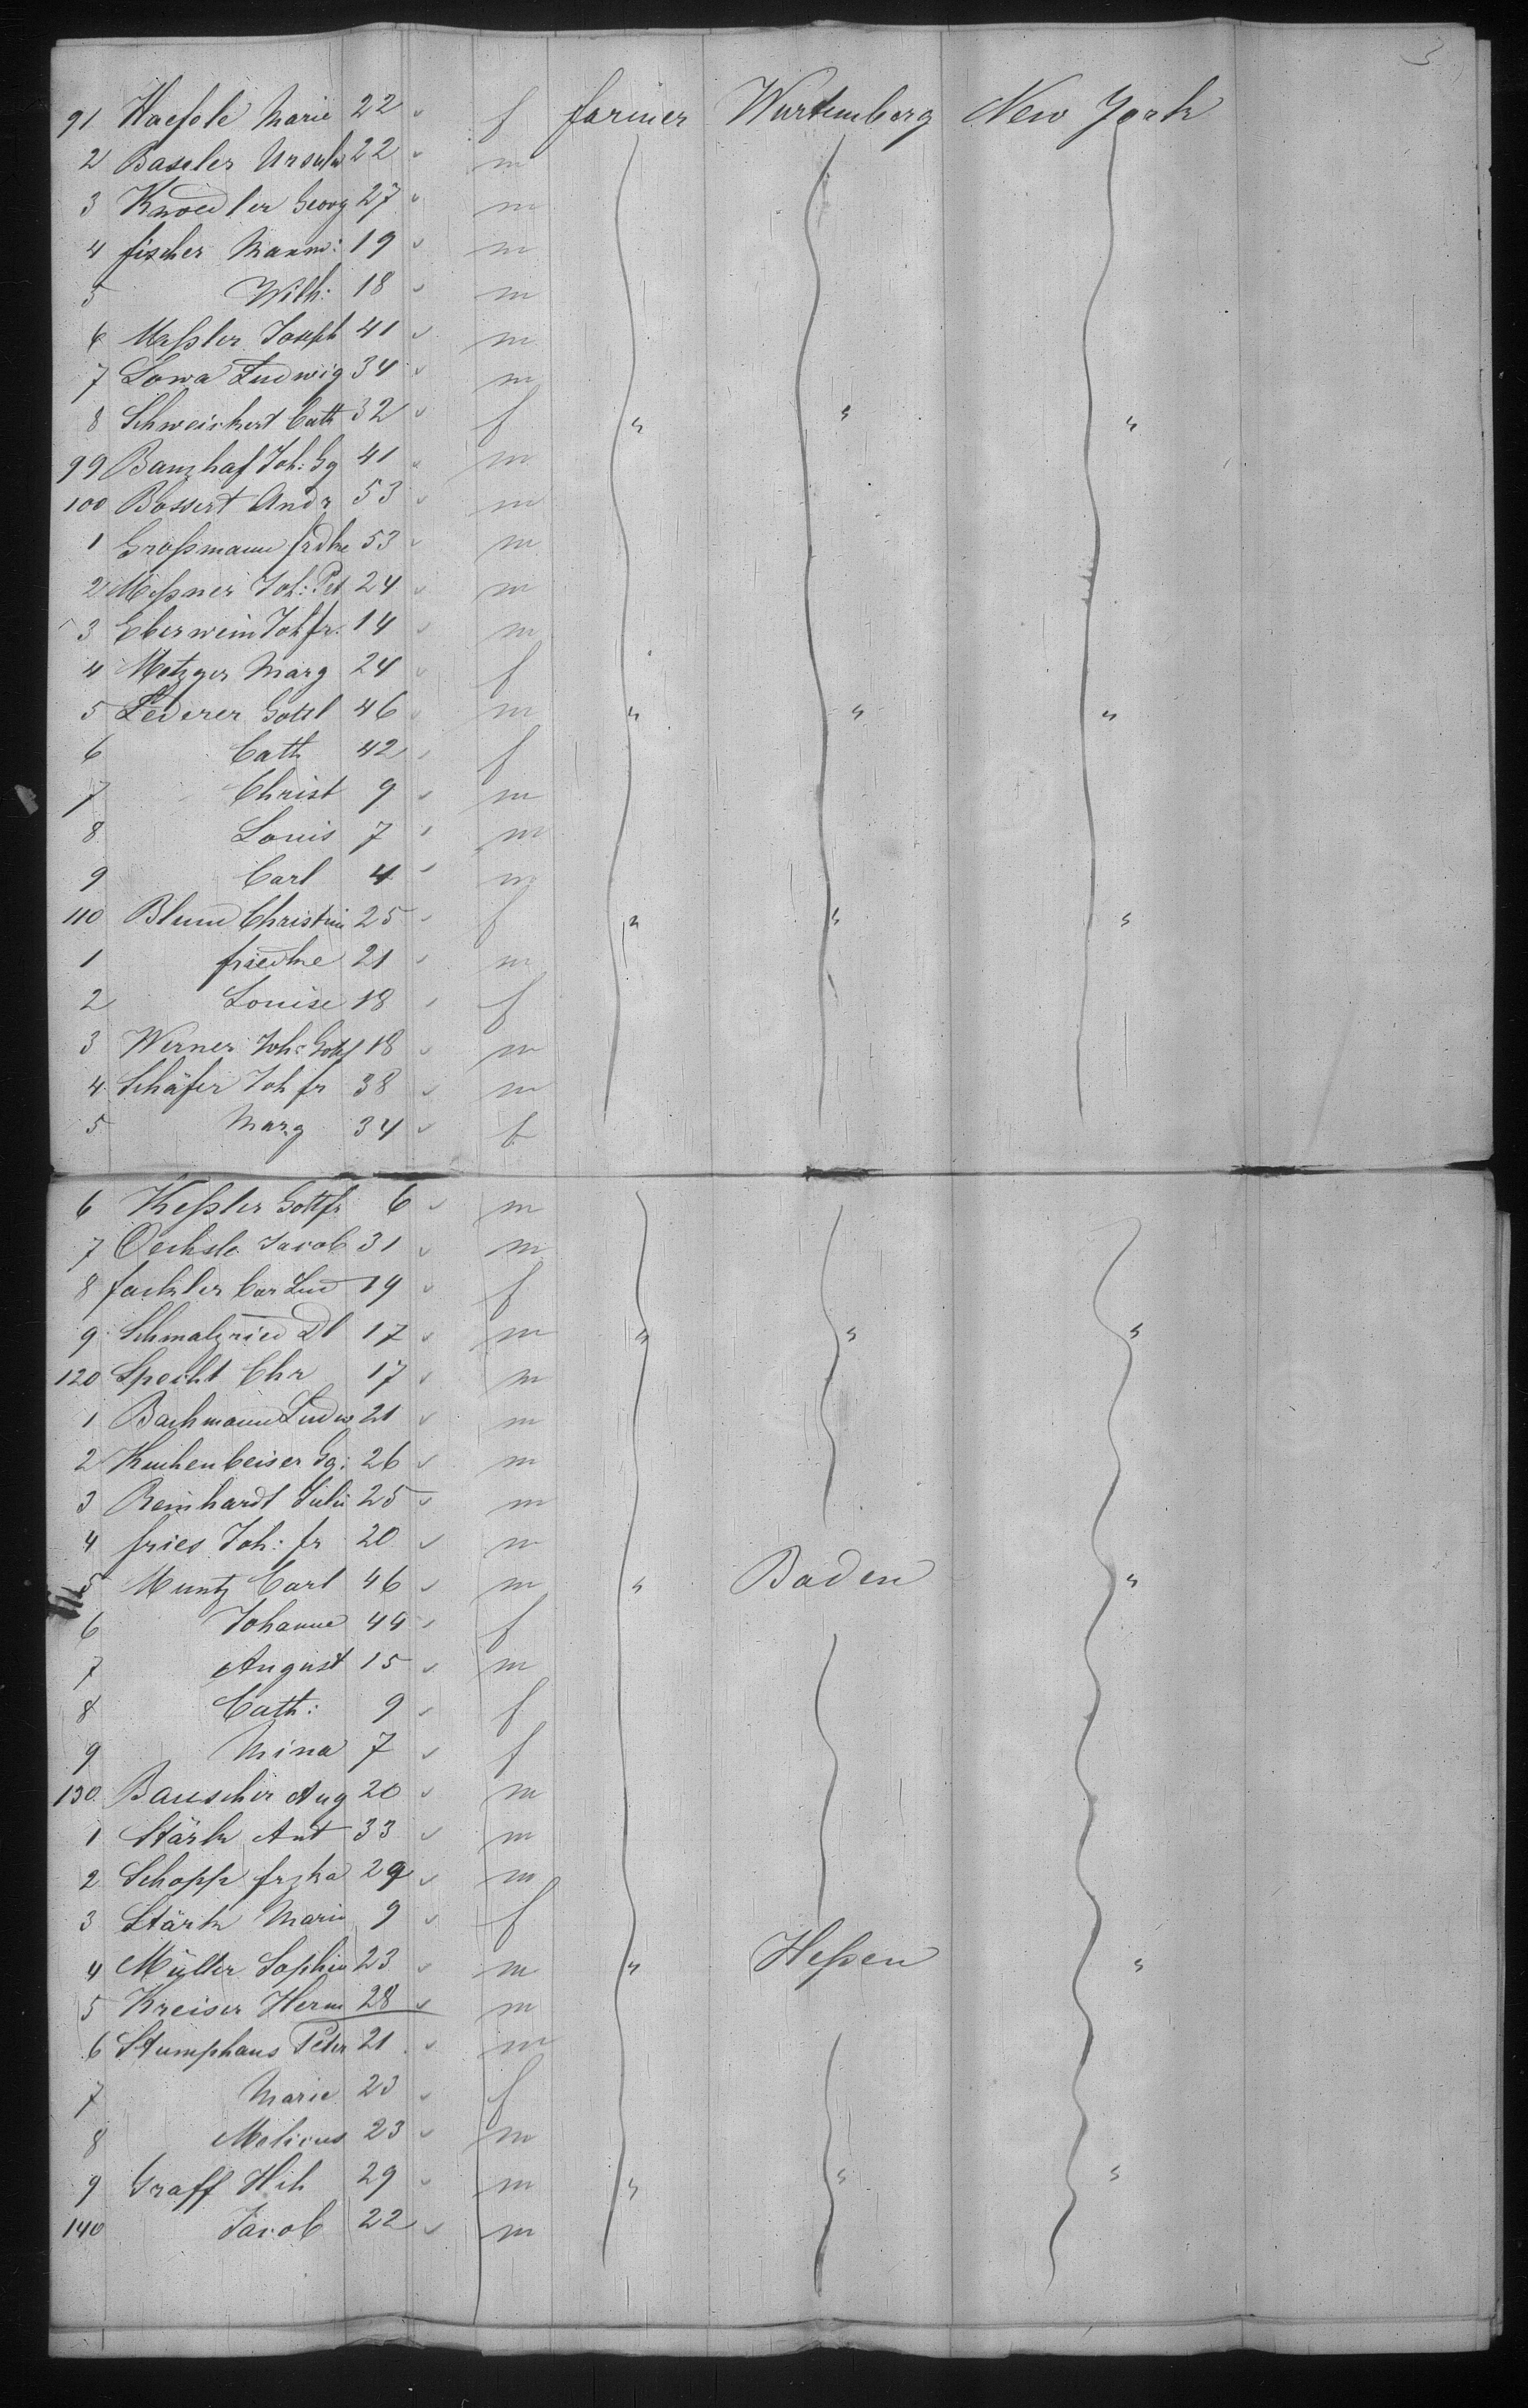 3
91 Haefele Marie 22 " f farmer Wurtemberg New York
2 Baseler Ursula 22 " m
3 Knoedler Georg 27 " m
4 fischer Mann: 19 " m
5 Wilh: 18 " m
6 Meßler Joseph 41 " m
7 Lowa Ludwig 34 " m
8 Schweickert Cath 32 " f " " "
99 Banzhaf Joh: Gg 41 " m
100 Bossert Andr 53 " m
1 Großmann frdke 53 " m
2 Meßner Joh: Pet 24 " m
3 Eberwein Joh fr. 14 " m
4 Metzger Marg 24 " f
5 Lederer Gottl 46 " m " " "
6 Cath 42 " f
7 Christ 9 " m
8 Louis 7 " m
9 Carl 4 " m
110 Blum Christin 25 " f " " "
1 friedke 21 " m
2 Louise 18 " f
3 Werner Joh: Gottf 18 " m
4 Schäfer Joh fr 38 " m
5 Marg 34 " f
6 Keßler Gottfr 6 " m
7 Oechsle Jacob 31 " m
8 fackler Car Lud 19 " f
9 Schmalzried Dl 17 " m " " "
120 Specht Chr 17 " m
1 Bachmann Ludw 21 " m
2 Kuchenbeiser Gg. 26 " m
3 Reinhardt Julie 25 " m
4 fries Joh: fr 20 " m
5 Muntz Carl 46 " m " Baden "
6 Johanne 44 " f
7 August 15 " m
8 Cath: 9 " f
9 Mina 7 " f
130 Bauscher Aug 20 " m
1 Stärk Ant 33 " m
2 Schopp frzka 29 " m
3 Stärk Marie 9 " f
4 Müller Sophie 23 " m " Heßen "
5 Kreiser Herm 28 " m
6 Stumphaus Peter 21 " m
7 Marie 23 " f
8 23 " m
9 Graff Hch 29 " m " " "
140 Jacob 22 " m